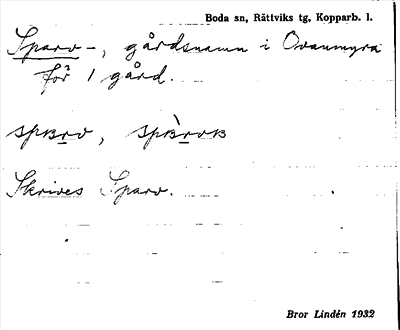 Boda sn, Rättviks tg, Kopparb. l.
Sparv-, gårdsnamn i Ovanmyra
för 1 gård.
Skrives Sparv.
Bror Lindén 1932